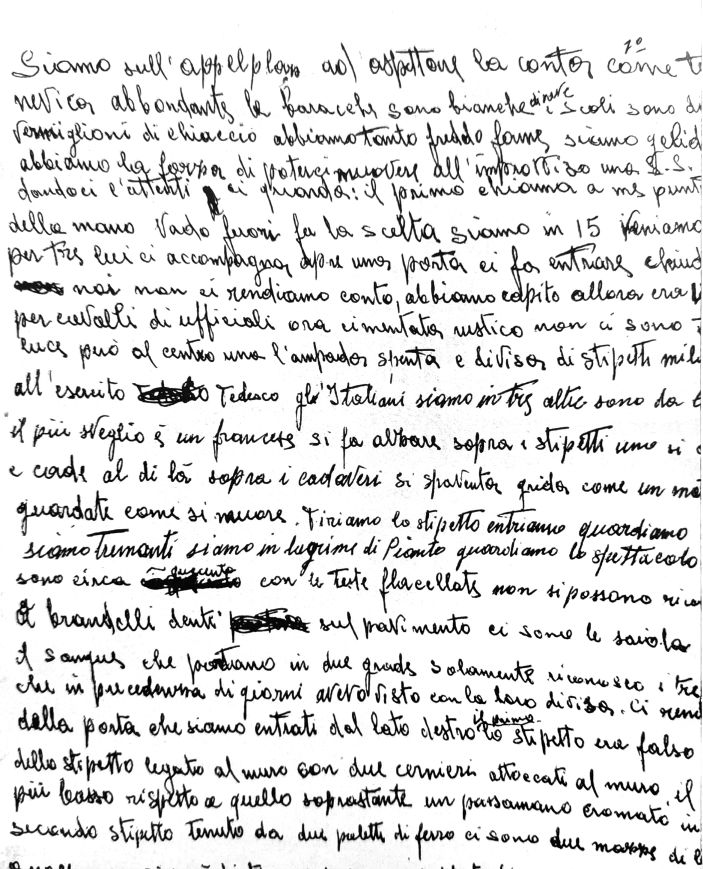 1º
Siamo sull'appelplaz ad aspettare la conta come
nevica abbondante le Baracche sono bianche di neve i scoli sono di
vermiglioni di chiaccio abbiamo tanto freddo fame siamo
abbiamo la forza di poterci muovere all'improvviso una S.S.
dandoci l'attenti ci guarda: il primo chiama a me
della mano Vado fuori fa la scelta siamo in 15 Veniamo
per tre lui ci accompagna, apre una porta ci fa entrare
noi non ci rendiamo conto, abbiamo capito allora era
per cavalli di ufficiali ora cimentata rustico non ci sono
luce però al centro una l'ampada spenta e divisa di stipetti
all'esercito Tedesco gl'Italiani siamo in tre altre sono da
il più sveglio è un francese si fa alzare sopra i stipetti uno si
e cade al di là sopra i cadaveri si spaventa grida come un
guardate come si muore. Tiriamo lo stipetto entriamo guardiamo
siamo Tremanti siamo in lagrime di Pianto guardiamo lo spettacolo
sono circa quecento con le teste flacellate non si possano
A brandelli denti sul pavimento ci sono le
il sangue che portiamo in due grade solamente riconosco i tre
che in precedenza di giorni avevo visto con la loro divisa. Ci
dalla porta che siamo entrati dal lato destro il primo stipetto era falso
dello stipetto legato al muro con due cernieri attoccati al muro il
più basso rispetto a quello soprastante un passamano cromato in
secondo stipetto tenuto da due paletti di ferro ci sono due mazze di